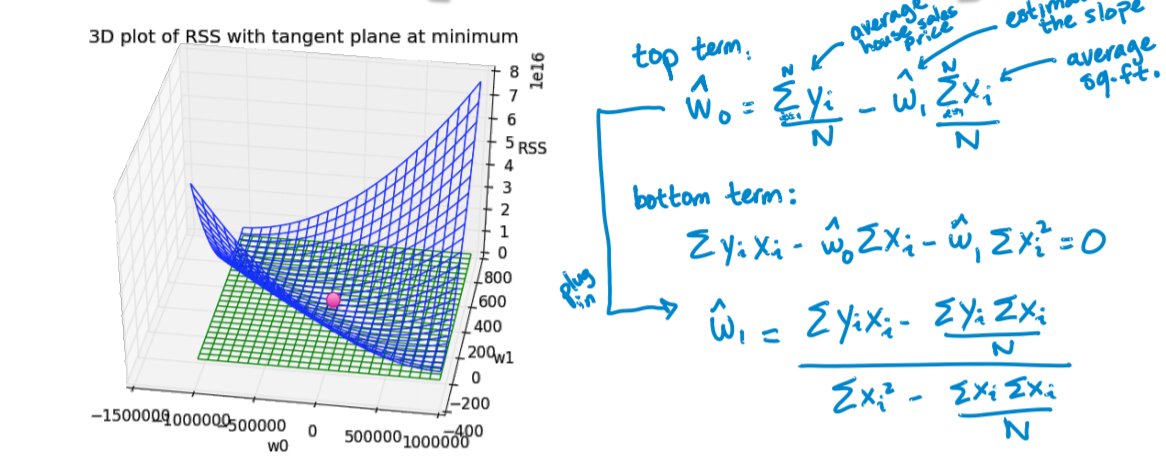 3D plot of RSS with tangent plane at minimum
8
1e16
7
6
5
RSS
4
3
2
1
0
800
600
400
200
w1
0
−200
−400
−1500000
−1000000
−500000
0
500000
1000000
w0
top term:
average
house sales
price
the slope
average
sq.ft.
ŵ₀ = Σ yᵢ / N − ŵ₁ Σ xᵢ / N
bottom term:
Σ yᵢ xᵢ − ŵ₀ Σ xᵢ − ŵ₁ Σ xᵢ² = 0
plug
in
ŵ₁ = (Σ yᵢ xᵢ − Σ yᵢ Σ xᵢ / N) / (Σ xᵢ² − Σ xᵢ Σ xᵢ / N)